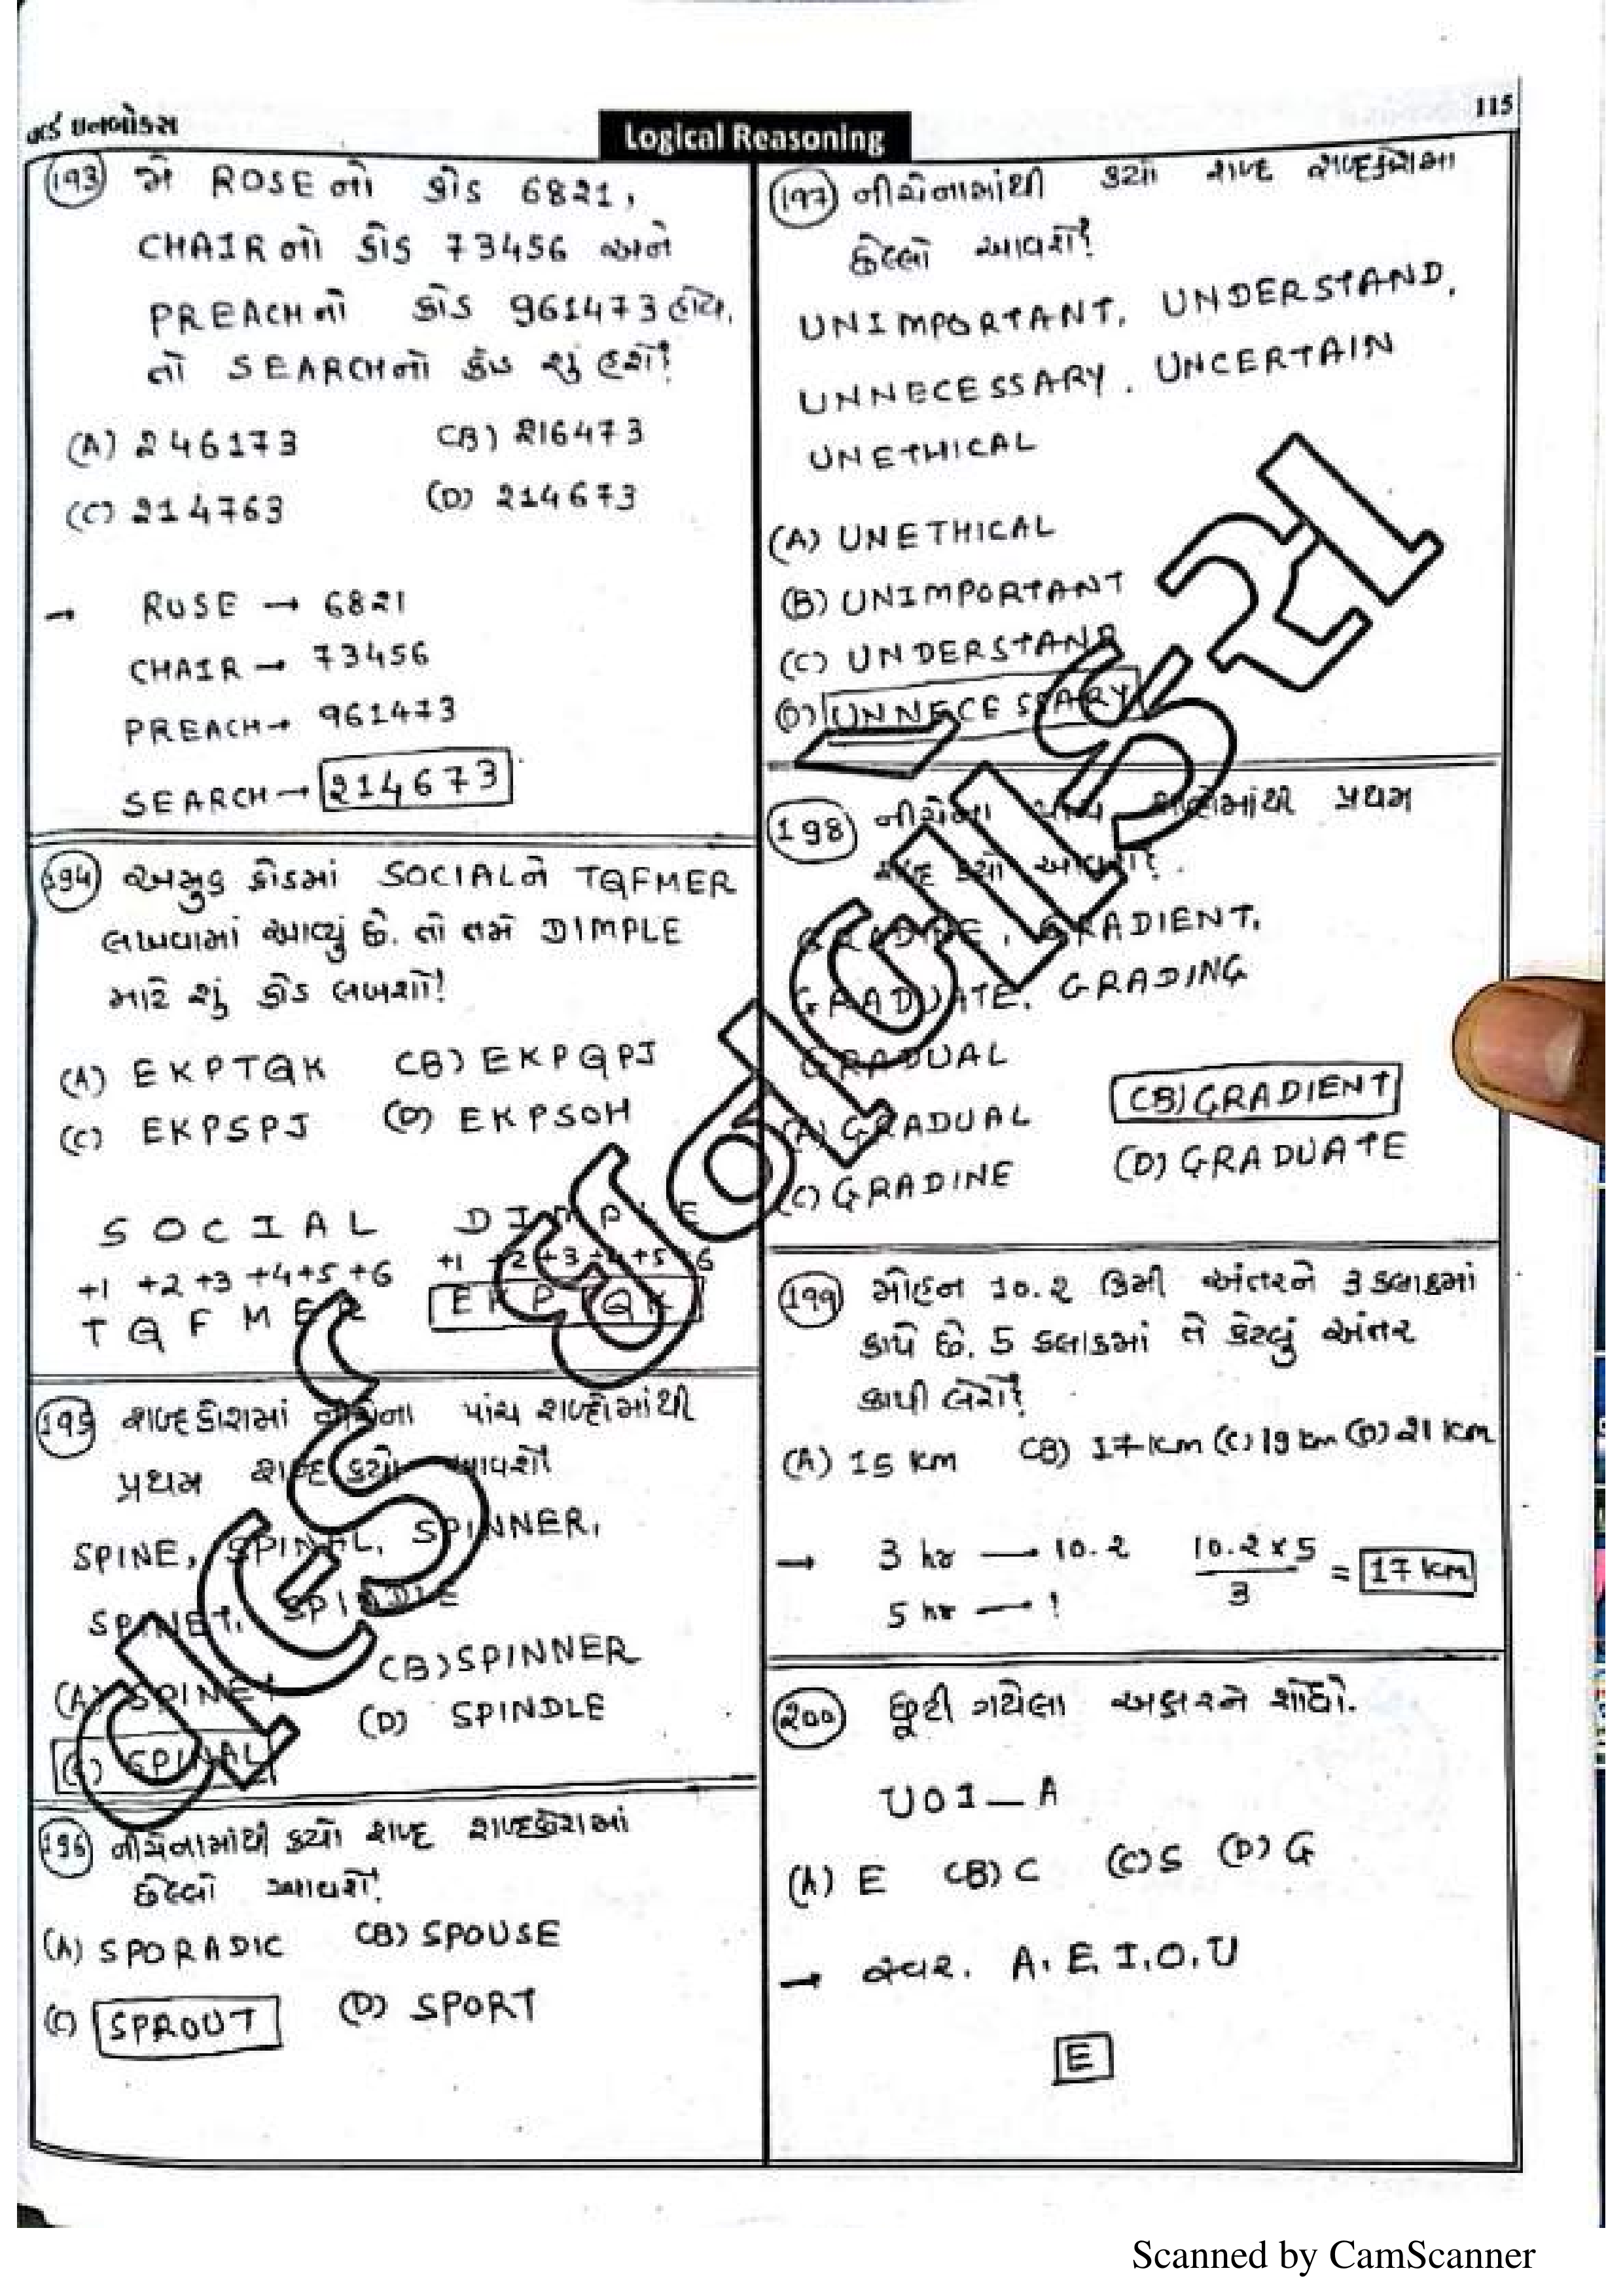 વર્ડ ઇનબોક્સ
Logical Reasoning
115
193 જો ROSE નો કોડ 6821,
CHAIR નો કોડ 73456 અને
PREACH નો કોડ 961473 હોય,
તો SEARCH નો કોડ શું હશે?
(A) 246173 (B) 216473
(C) 214763 (D) 214673
→ ROSE → 6821
CHAIR → 73456
PREACH → 961473
SEARCH → 214673
194 અમુક કોડમાં SOCIAL ને TQFMER
લખવામાં આવ્યું છે. તો તમે DIMPLE
માટે શું કોડ લખશો?
(A) EKPTQK (B) EKPQPJ
(C) EKPSPJ (D) EKPSOH
S O C I A L D I M P L E
+1 +2 +3 +4 +5 +6 +1 +2 +3 +4 +5 +6
T Q F M E R E K P T Q K
195 શબ્દકોશમાં નીચેના પાંચ શબ્દોમાંથી
પ્રથમ શબ્દ કયો આવશે
SPINE, SPINAL, SPINNER,
SPINET, SPINDLE
(A) SPINET (B) SPINNER
(C) SPINAL (D) SPINDLE
196 નીચેનામાંથી કયો શબ્દ શબ્દકોશમાં
છેલ્લો આવશે?
(A) SPORADIC (B) SPOUSE
(C) SPROUT (D) SPORT
197 નીચેનામાંથી કયો શબ્દ શબ્દકોશમા
છેલ્લો આવશે?
UNIMPORTANT, UNDERSTAND,
UNNECESSARY, UNCERTAIN
UNETHICAL
(A) UNETHICAL
(B) UNIMPORTANT
(C) UNDERSTAND
(D) UNNECESSARY
198 નીચેના પાંચ શબ્દોમાંથી પ્રથમ
શબ્દ કયો આવશે?
GRADINE, GRADIENT,
GRADUATE, GRADING
GRADUAL
(A) GRADUAL (B) GRADIENT
(C) GRADINE (D) GRADUATE
199 મોહન 10.2 કિમી અંતરને 3 કલાકમાં
કાપે છે. 5 કલાકમાં તે કેટલું અંતર
કાપી લેશે?
(A) 15 km (B) 17 km (C) 19 km (D) 21 km
→ 3 hr → 10.2 10.2 x 5 / 3 = 17 km
5 hr → ?
200 છૂટી ગયેલા અક્ષરને શોધો.
U O I _ A
(A) E (B) C (C) S (D) G
→ સ્વર. A, E, I, O, U
E
Scanned by CamScanner